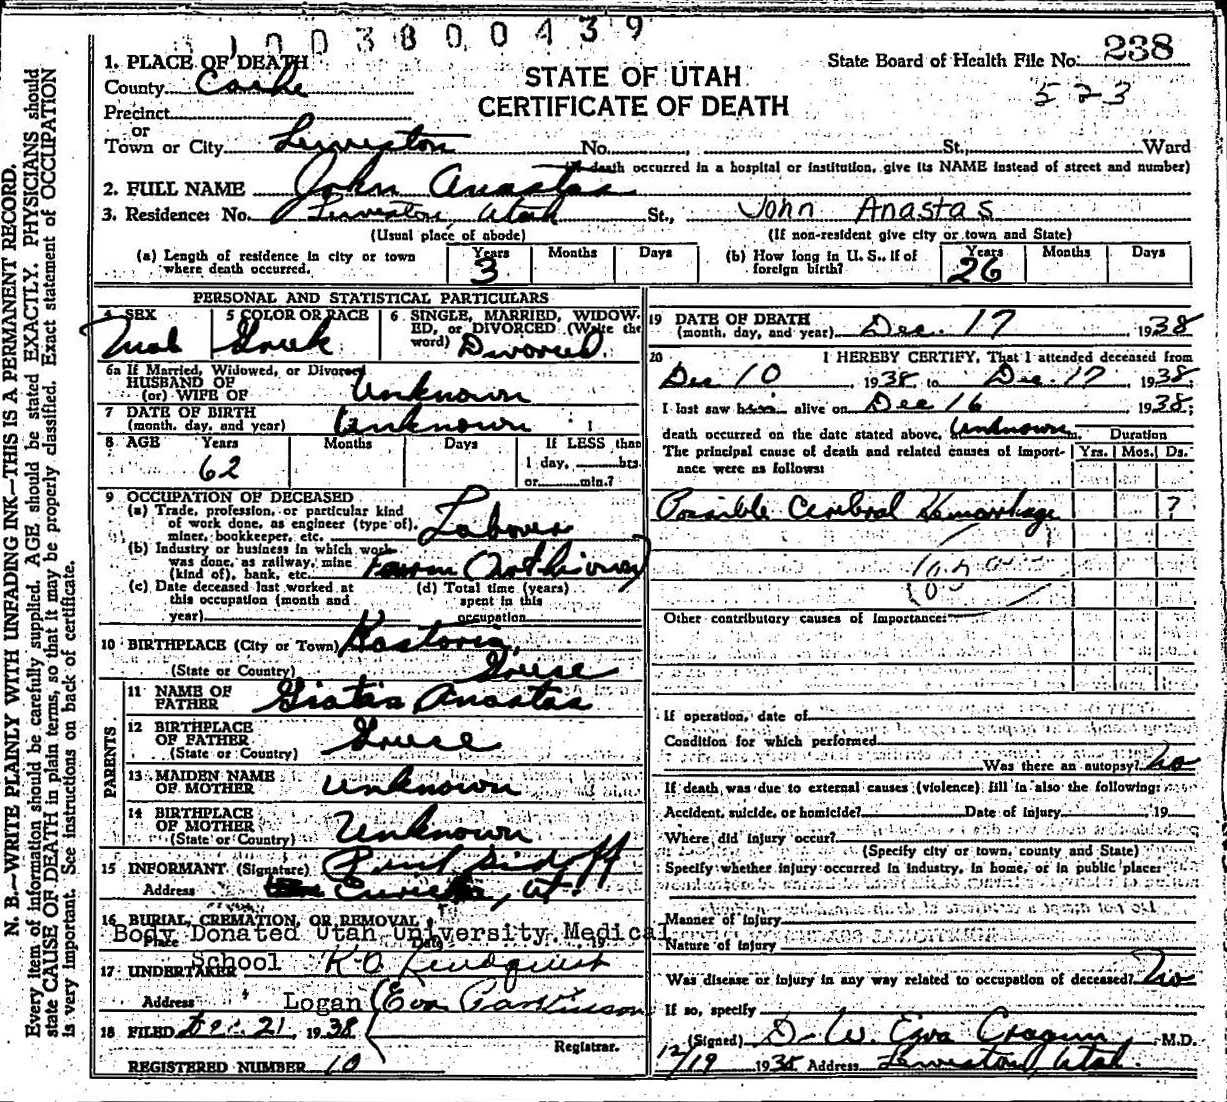 1003800439
1. PLACE OF DEATH
County Cache
STATE OF UTAH
CERTIFICATE OF DEATH
State Board of Health File No. 238
523
Precinct
or
Town or City Lewiston No. St., Ward
(If death occurred in a hospital or institution, give its NAME instead of street and number)
2. FULL NAME John Anastas
3. Residence: No. Lewiston, Utah St., John Anastas
(Usual place of abode) (If non-resident give city or town and State)
(a) Length of residence in city or town where death occurred. Years 3 Months Days
(b) How long in U. S., if of foreign birth? Years 26 Months Days
PERSONAL AND STATISTICAL PARTICULARS
4 SEX Mal 5 COLOR OR RACE Greek
6 SINGLE, MARRIED, WIDOWED, or DIVORCED (Write the word) Divorced
6a If Married, Widowed, or Divorced
HUSBAND OF
(or) WIFE OF Unknown
7 DATE OF BIRTH
(month, day, and year) Unknown
8 AGE Years Months Days If LESS than
62 1 day, hrs.
or min.?
9 OCCUPATION OF DECEASED
(a) Trade, profession, or particular kind
of work done, as engineer (type of),
miner, bookkeeper, etc. Laborer
(b) Industry or business in which work
was done, as railway, mine
(kind of), bank, etc. Farm
(c) Date deceased last worked at
this occupation (month and
year)
(d) Total time (years)
spent in this
occupation
10 BIRTHPLACE (City or Town) Kastoria,
(State or Country) Greece
PARENTS
11 NAME OF
FATHER Anastas
12 BIRTHPLACE
OF FATHER
(State or Country) Greece
13 MAIDEN NAME
OF MOTHER Unknown
14 BIRTHPLACE
OF MOTHER
(State or Country) Unknown
15 INFORMANT (Signature)
Address Ut.
16 BURIAL, CREMATION, OR REMOVAL
Place Date 19
Body Donated Utah University Medical
School
17 UNDERTAKER
Address Logan (Eva Parkinson
18 FILED Dec. 21, 1938
Registrar.
REGISTERED NUMBER 10
19 DATE OF DEATH
(month, day, and year) Dec. 17 1938
20 I HEREBY CERTIFY, That I attended deceased from
Dec 10, 1938 to Dec. 17 1938;
I last saw alive on Dec 16 1938;
death occurred on the date stated above, Unknown m. Duration
The principal cause of death and related causes of importance were as follows: Yrs. Mos. Ds.
Possible Cerebral Hemorrhage ?
Other contributory causes of importance:
If operation, date of
Condition for which performed
Was there an autopsy? No
If death was due to external causes (violence) fill in also the following:
Accident, suicide, or homicide? Date of injury 19
Where did injury occur?
(Specify city or town, county and State)
Specify whether injury occurred in industry, in home, or in public place:
Manner of injury
Nature of injury
Was disease or injury in any way related to occupation of deceased? No
If so, specify
(Signed) D. W. Cragun M.D.
12/19 1938 Address Lewiston, Utah.
N. B.—WRITE PLAINLY WITH UNFADING INK—THIS IS A PERMANENT RECORD.
Every item of information should be carefully supplied. AGE should be stated EXACTLY. PHYSICIANS should
state CAUSE OF DEATH in plain terms, so that it may be properly classified. Exact statement of OCCUPATION
is very important. See instructions on back of certificate.